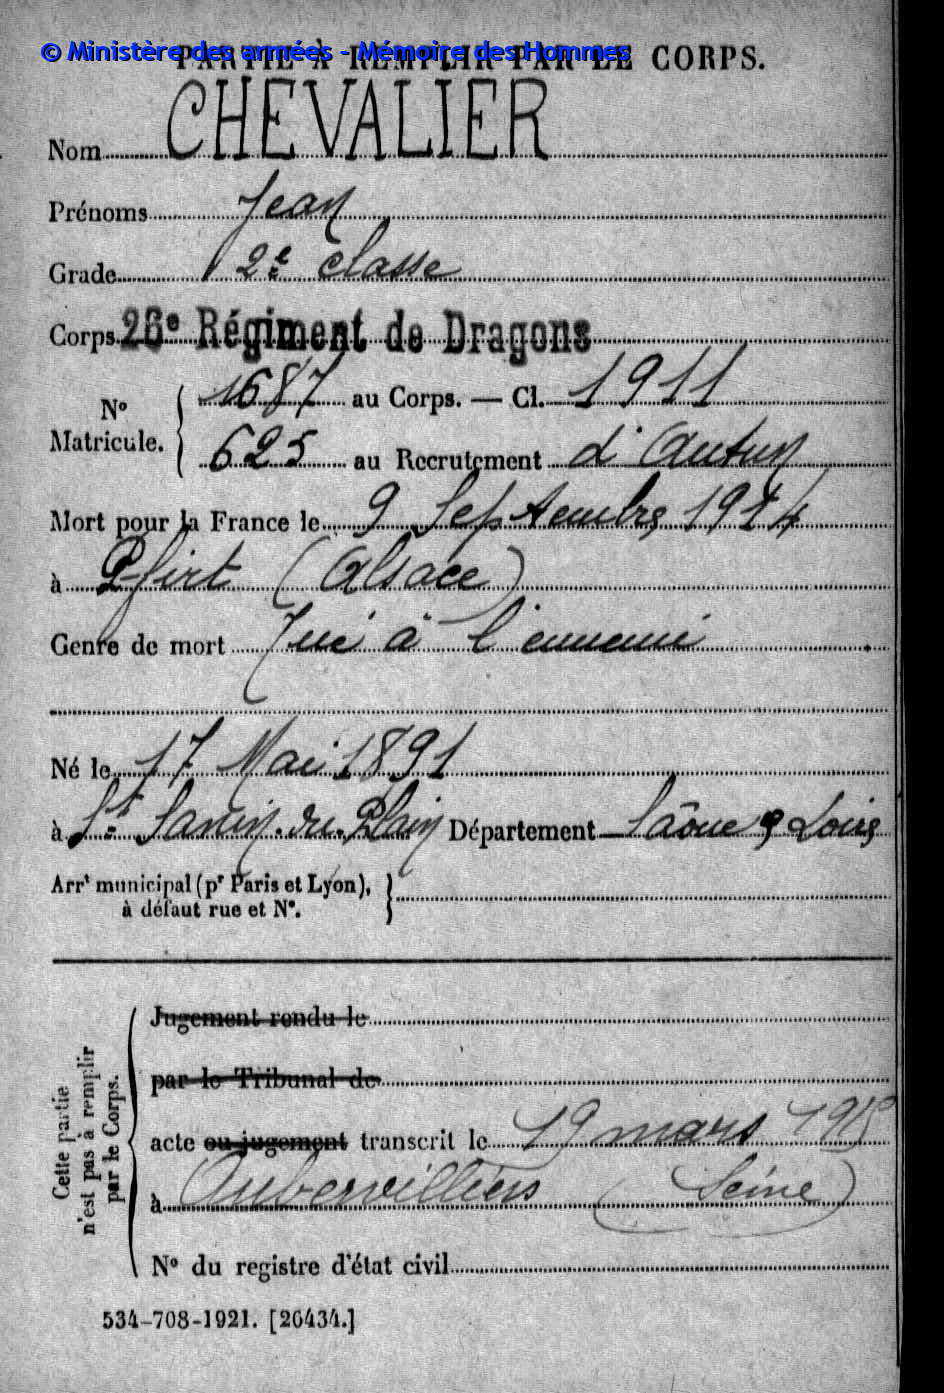 © Ministère des armées - Mémoire des Hommes
PARTIE À REMPLIR PAR LE CORPS.
Nom CHEVALIER
Prénoms Jean
Grade 2e classe
Corps 26e Régiment de Dragons
No Matricule. { 1687 au Corps. — Cl. 1911
625 au Recrutement d'Autun
Mort pour la France le 9 Septembre 1914
à Pfirt (Alsace)
Genre de mort Tué à l'ennemi
Né le 17 Mai 1891
à St Sernin-du-Plain Département Saône & Loire
Arrt municipal (pr Paris et Lyon),
à défaut rue et No.
Cette partie
n'est pas à remplir
par le Corps.
Jugement rendu le
par le Tribunal de
acte ou jugement transcrit le 19 mars 1915
à Aubervilliers (Seine)
No du registre d'état civil
534-708-1921. [26434.]